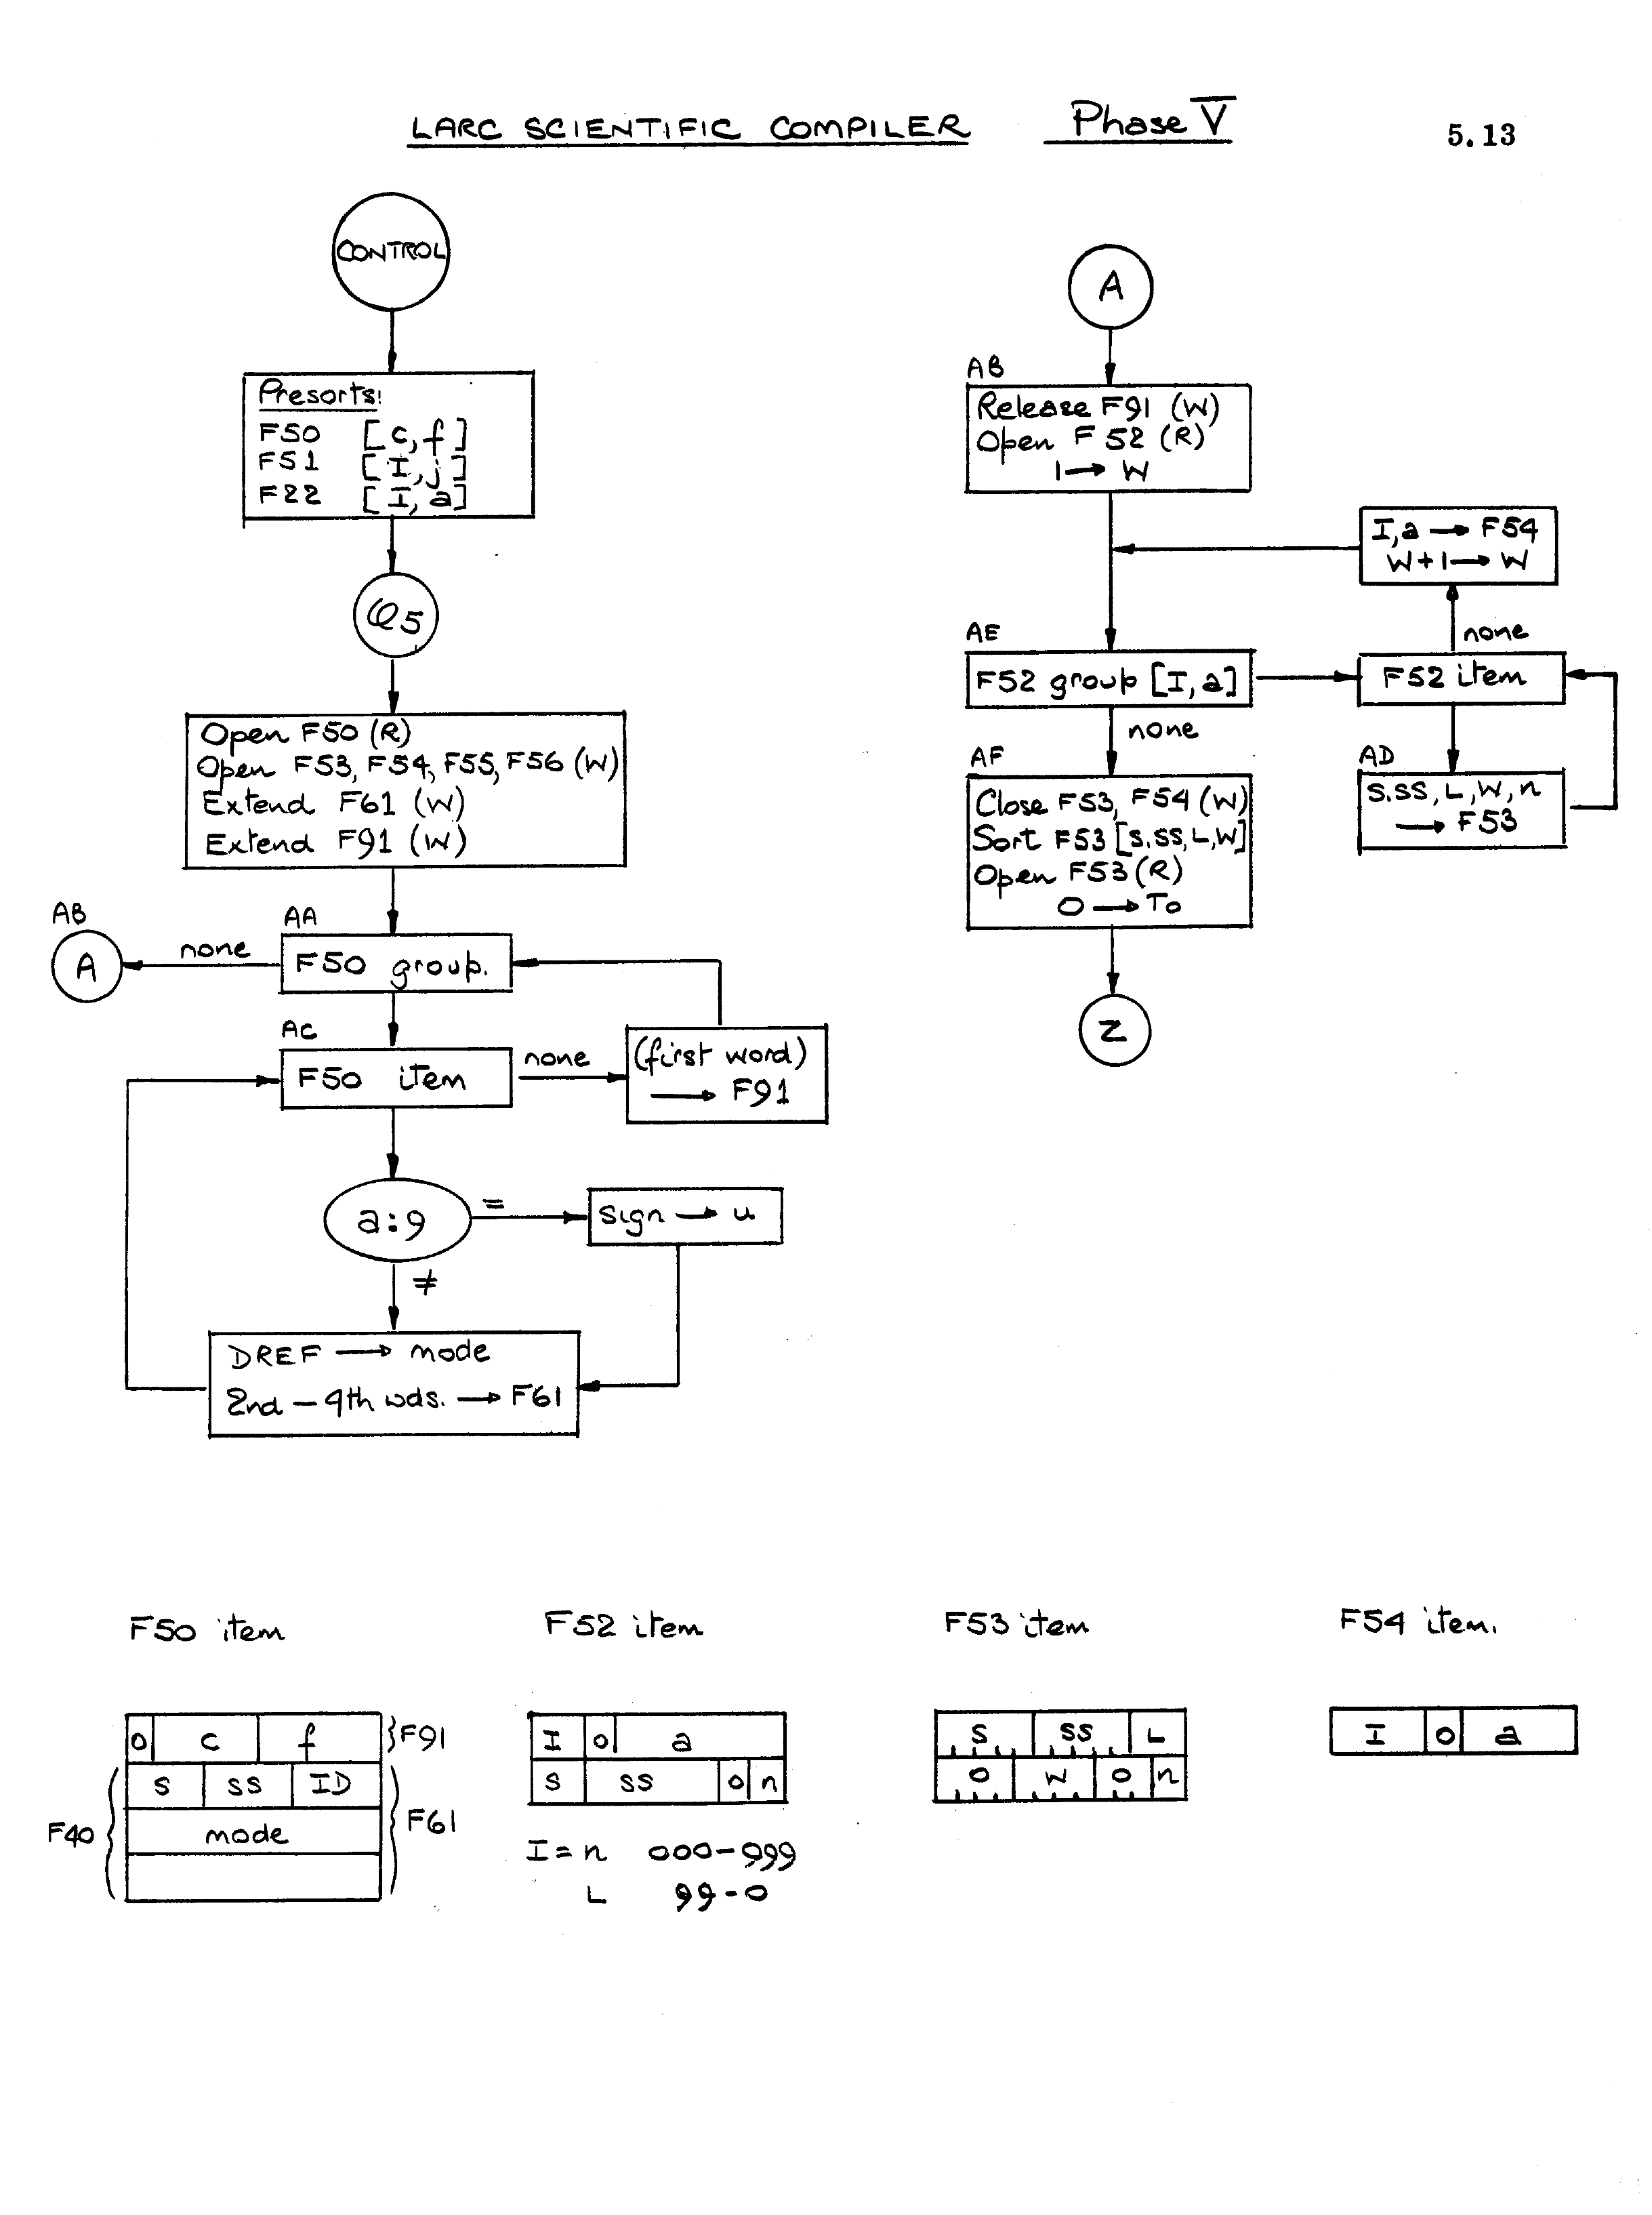 LARC SCIENTIFIC COMPILER Phase V 5.13
CONTROL
Presorts:
F50 [c,f]
F51 [I,j]
F22 [I,a]
Q5
Open F50 (R)
Open F53, F54, F55, F56 (W)
Extend F61 (W)
Extend F91 (W)
AB
A
none
AA
F50 group.
AC
F50 item
none
(first word)
→ F91
a:9
=
sign → u
≠
DREF → mode
2nd – 4th wds. → F61
A
AB
Release F91 (W)
Open F52 (R)
1 → W
I,a → F54
W+1 → W
none
AE
F52 group [I,a]
F52 item
none
AF
Close F53, F54 (W)
Sort F53 [S.SS, L, W]
Open F53 (R)
0 → To
AD
S.SS, L, W, n
→ F53
Z
F50 item
0 c f }F91
S SS ID
F40 mode F61
F52 item
I 0 a
S SS 0 n
I = n 000-999
L 99-0
F53 item
S SS L
0 W 0 n
F54 item.
I 0 a